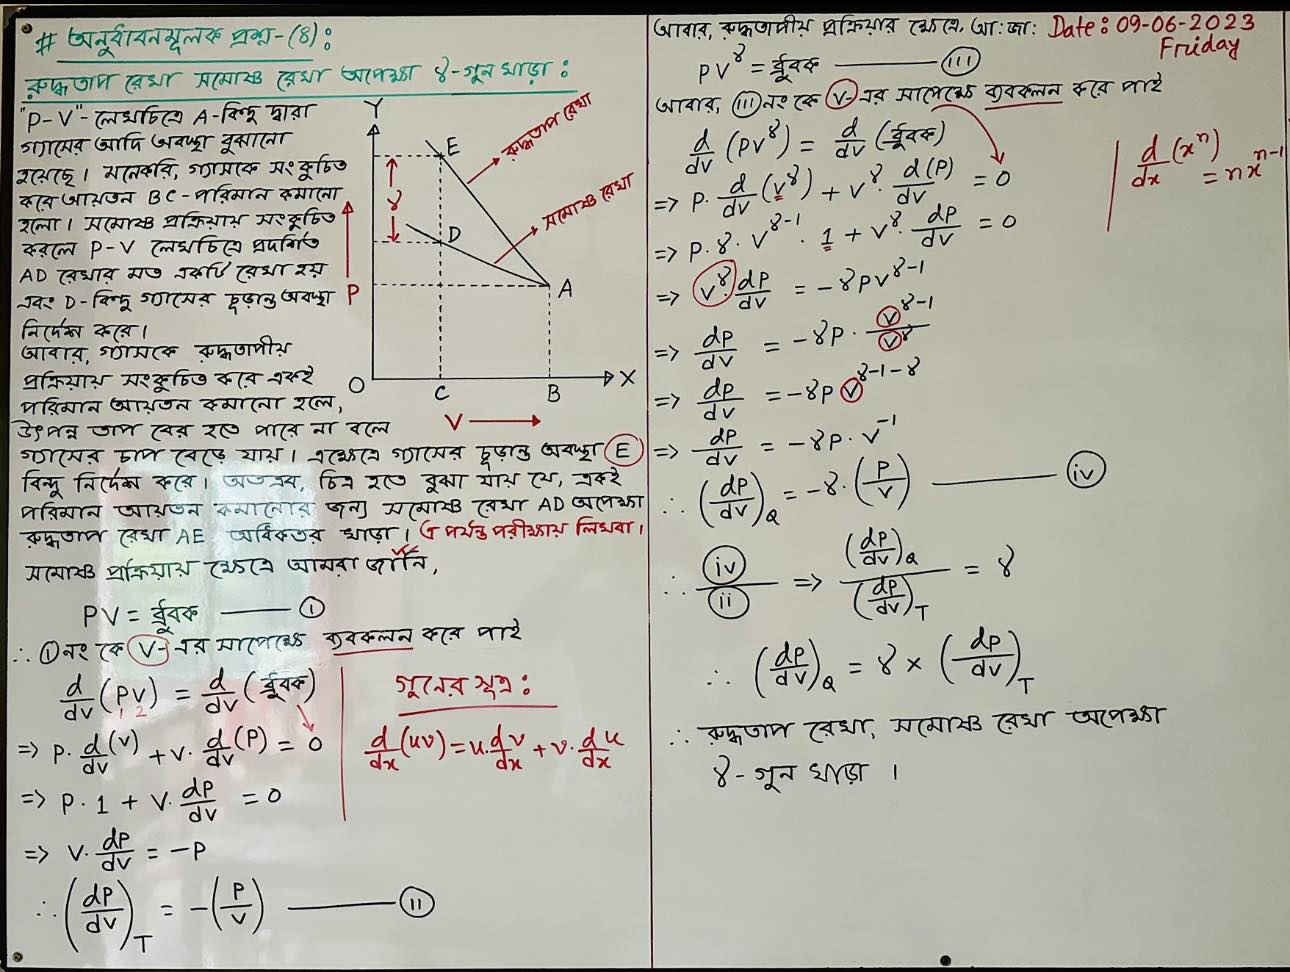 # অনুধাবনমূলক প্রশ্ন-(৪):
রুদ্ধতাপ রেখা সমোষ্ণ রেখা অপেক্ষা γ-গুন খাড়া :
"P-V"-লেখচিত্রে A-বিন্দু দ্বারা
গ্যাসের আদি অবস্থা বুঝানো
হয়েছে। মনেকরি, গ্যাসকে সংকুচিত
করে আয়তন BC-পরিমান কমানো
হলো। সমোষ্ণ প্রক্রিয়ায় সংকুচিত
করলে P-V লেখচিত্রে প্রদর্শিত
AD রেখার মত একটি রেখা হয়
এবং D-বিন্দু গ্যাসের চূড়ান্ত অবস্থা
নির্দেশ করে।
আবার, গ্যাসকে রুদ্ধতাপীয়
প্রক্রিয়ায় সংকুচিত করে একই
পরিমান আয়তন কমানো হলে,
উৎপন্ন তাপ বের হতে পারে না বলে
গ্যাসের চাপ বেড়ে যায়। এক্ষেত্রে গ্যাসের চূড়ান্ত অবস্থা E
বিন্দু নির্দেশ করে। অতএব, চিত্র হতে বুঝা যায় যে, একই
পরিমান আয়তন কমানোর জন্য সমোষ্ণ রেখা AD অপেক্ষা
রুদ্ধতাপ রেখা AE অধিকতর খাড়া। এ পর্যন্ত পরীক্ষায় লিখবা।
Y
E
রুদ্ধতাপ রেখা
γ
D
সমোষ্ণ রেখা
P
A
O
C
B
X
V
সমোষ্ণ প্রক্রিয়ায় ক্ষেত্রে আমরা জানি,
PV = ধ্রুবক ——— (i)
∴ (i) নং কে V-এর সাপেক্ষে ব্যবকলন করে পাই
d/dv (PV) = d/dv (ধ্রুবক)
1 2
=> P. d/dv (V) + V. d/dv (P) = 0
=> P. 1 + V. dP/dv = 0
=> V. dP/dv = -P
∴ (dP/dv)_T = -(P/V) ——— (ii)
গুনের সূত্র :
d/dx (uv) = u. dv/dx + v. du/dx
আবার, রুদ্ধতাপীয় প্রক্রিয়ার ক্ষেত্রে, আ: জা:
Date : 09-06-2023
Friday
PV^γ = ধ্রুবক ——— (iii)
আবার, (iii) নং কে V-এর সাপেক্ষে ব্যবকলন করে পাই
d/dv (PV^γ) = d/dv (ধ্রুবক)
=> P. d/dv (V^γ) + V^γ. d(P)/dv = 0
=> P. γ. V^γ-1 . 1 + V^γ. dP/dv = 0
=> V^γ. dP/dv = -γPV^γ-1
=> dP/dv = -γP. V^γ-1/V^γ
=> dP/dv = -γP V^γ-1-γ
=> dP/dv = -γP. V^-1
∴ (dP/dv)_Q = -γ. (P/V) ——— (iv)
∴ (iv)/(ii) => (dP/dv)_Q/(dP/dv)_T = γ
∴ (dP/dv)_Q = γ × (dP/dv)_T
∴ রুদ্ধতাপ রেখা, সমোষ্ণ রেখা অপেক্ষা
γ-গুন খাড়া ।
d/dx (x^n)
= nx^n-1